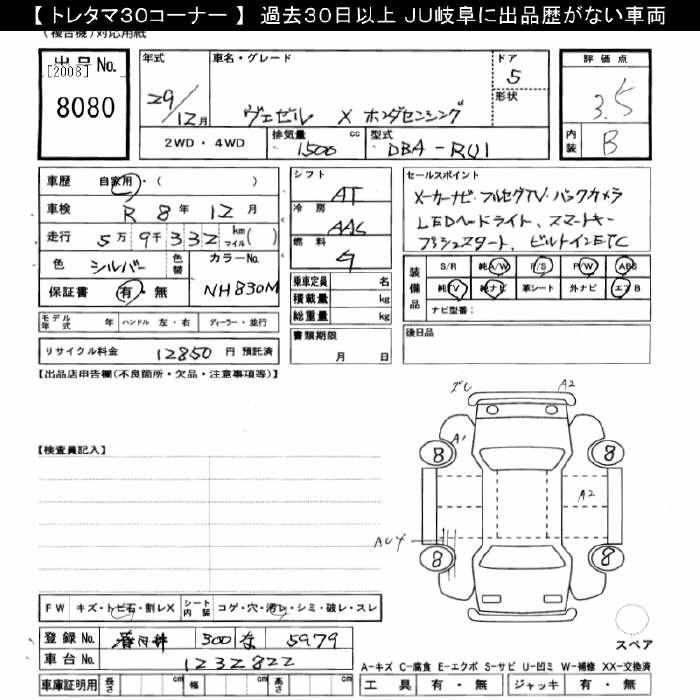 【トレタマ30コーナー】 過去30日以上 JU岐阜に出品歴がない車両
(複合機)対応用紙
出品No.
[2008]
8080
年式 車名・グレード ドア
29/12月 ヴェゼル X ホンダセンシング 5
形状
評価点
3.5
内装 B
2WD・4WD 排気量 1500 cc 型式 DBA-RU1
車歴 自家用・( )
車検 R 8年 12月
走行 5万9千332 km マイル( )
色 シルバー 色替 カラーNo.
保証書 有・無 NH830M
シフト AT
冷房 AAC
燃料
乗車定員 名
積載量 kg
総重量 kg
セールスポイント
メーカーナビ・フルセグTV・バックカメラ
LEDヘッドライト、スマートキー
プッシュスタート、ビルトインETC
装備品 S/R 純A/W P/S P/W ABS
純TV 純ナビ 革シート 外ナビ エアB
ナビ型番:
モデル年式 年 ハンドル 左・右 ディーラー・並行
リサイクル料金 12850 円 預託済
書類期限 月 日
後日品
【出品店申告欄(不良箇所・欠品・注意事項等)】
ズレ A2
A1
8 8
A2
8 8
【検査員記入】
FW キズ・トビ石・割レX シート内装 コゲ・穴・汚レ・シミ・破レ・スレ
登録No. 300 5979
車台No. 1232822
スペア
A-キズ C-腐食 E-エクボ S-サビ U-凹ミ W-補修 XX-交換済
車庫証明用 長さ cm 幅 cm 高さ cm
工具 有・無 ジャッキ 有・無